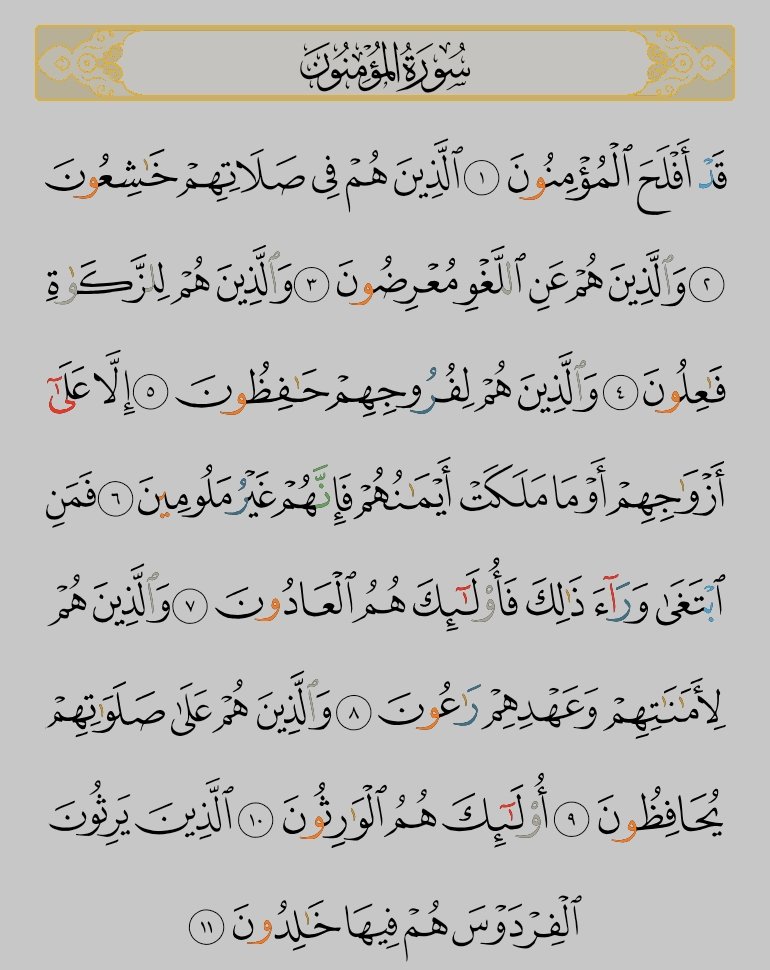 سُورَةُ المُؤْمِنُونَ
قَدْ أَفْلَحَ ٱلْمُؤْمِنُونَ ١ ٱلَّذِينَ هُمْ فِى صَلَاتِهِمْ خَـٰشِعُونَ
٢ وَٱلَّذِينَ هُمْ عَنِ ٱللَّغْوِ مُعْرِضُونَ ٣ وَٱلَّذِينَ هُمْ لِلزَّكَوٰةِ
فَـٰعِلُونَ ٤ وَٱلَّذِينَ هُمْ لِفُرُوجِهِمْ حَـٰفِظُونَ ٥ إِلَّا عَلَىٰٓ
أَزْوَٰجِهِمْ أَوْ مَا مَلَكَتْ أَيْمَـٰنُهُمْ فَإِنَّهُمْ غَيْرُ مَلُومِينَ ٦ فَمَنِ
ٱبْتَغَىٰ وَرَآءَ ذَٰلِكَ فَأُو۟لَـٰٓئِكَ هُمُ ٱلْعَادُونَ ٧ وَٱلَّذِينَ هُمْ
لِأَمَـٰنَـٰتِهِمْ وَعَهْدِهِمْ رَٰعُونَ ٨ وَٱلَّذِينَ هُمْ عَلَىٰ صَلَوَٰتِهِمْ
يُحَافِظُونَ ٩ أُو۟لَـٰٓئِكَ هُمُ ٱلْوَٰرِثُونَ ١٠ ٱلَّذِينَ يَرِثُونَ
ٱلْفِرْدَوْسَ هُمْ فِيهَا خَـٰلِدُونَ ١١